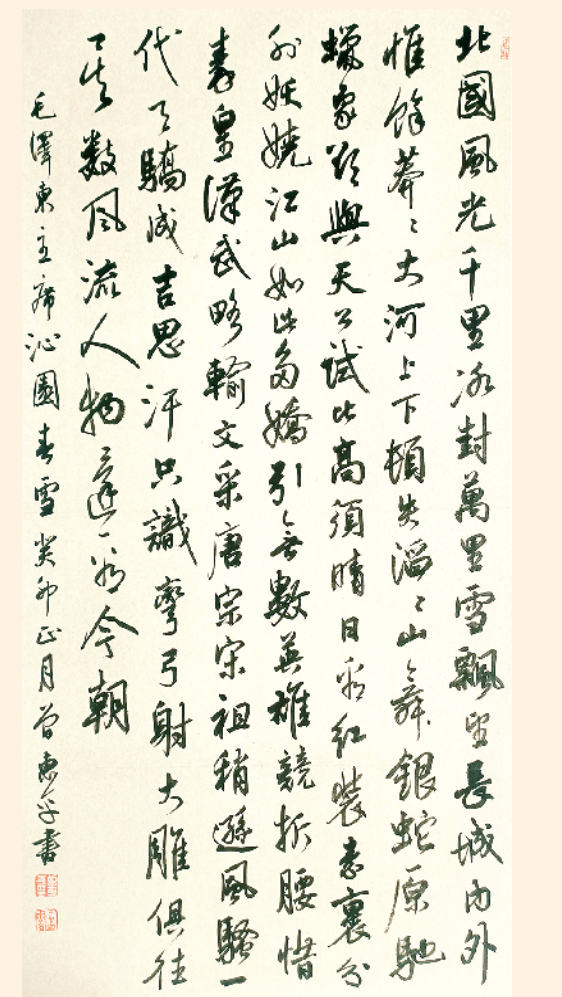 北國風光千里冰封萬里雪飄望長城内外
惟餘莽〻大河上下頓失滔〻山舞銀蛇原馳
蠟象欲與天公試比高須晴日看紅裝素裹分
外妖嬈江山如此多嬌引無數英雄競折腰惜
秦皇漢武略輸文采唐宗宋祖稍遜風騷一
代天驕成吉思汗只識彎弓射大雕俱往
矣數風流人物還看今朝
毛澤東主席沁園春雪癸卯正月曾惠書